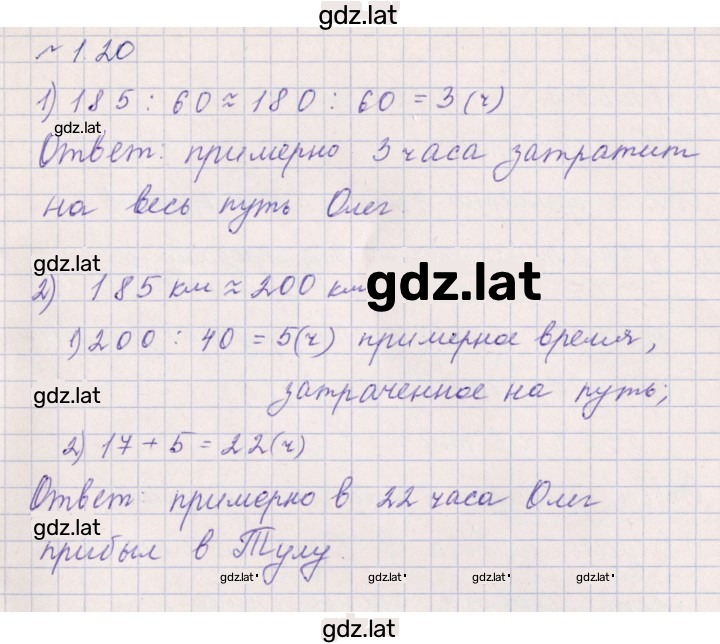 gdz.lat
№ 1.20
1) 185 : 60 ≈ 180 : 60 = 3 (ч)
gdz.lat
Ответ: примерно 3 часа затратит
на весь путь Олег.
gdz.lat
2) 185 км ≈ 200 км
gdz.lat
1) 200 : 40 = 5(ч) примерное время,
gdz.lat
затраченное на путь;
2) 17 + 5 = 22(ч)
Ответ: примерно в 22 часа Олег
gdz.lat
прибыл в Тулу.
gdz.lat gdz.lat gdz.lat gdz.lat
gdz.lat